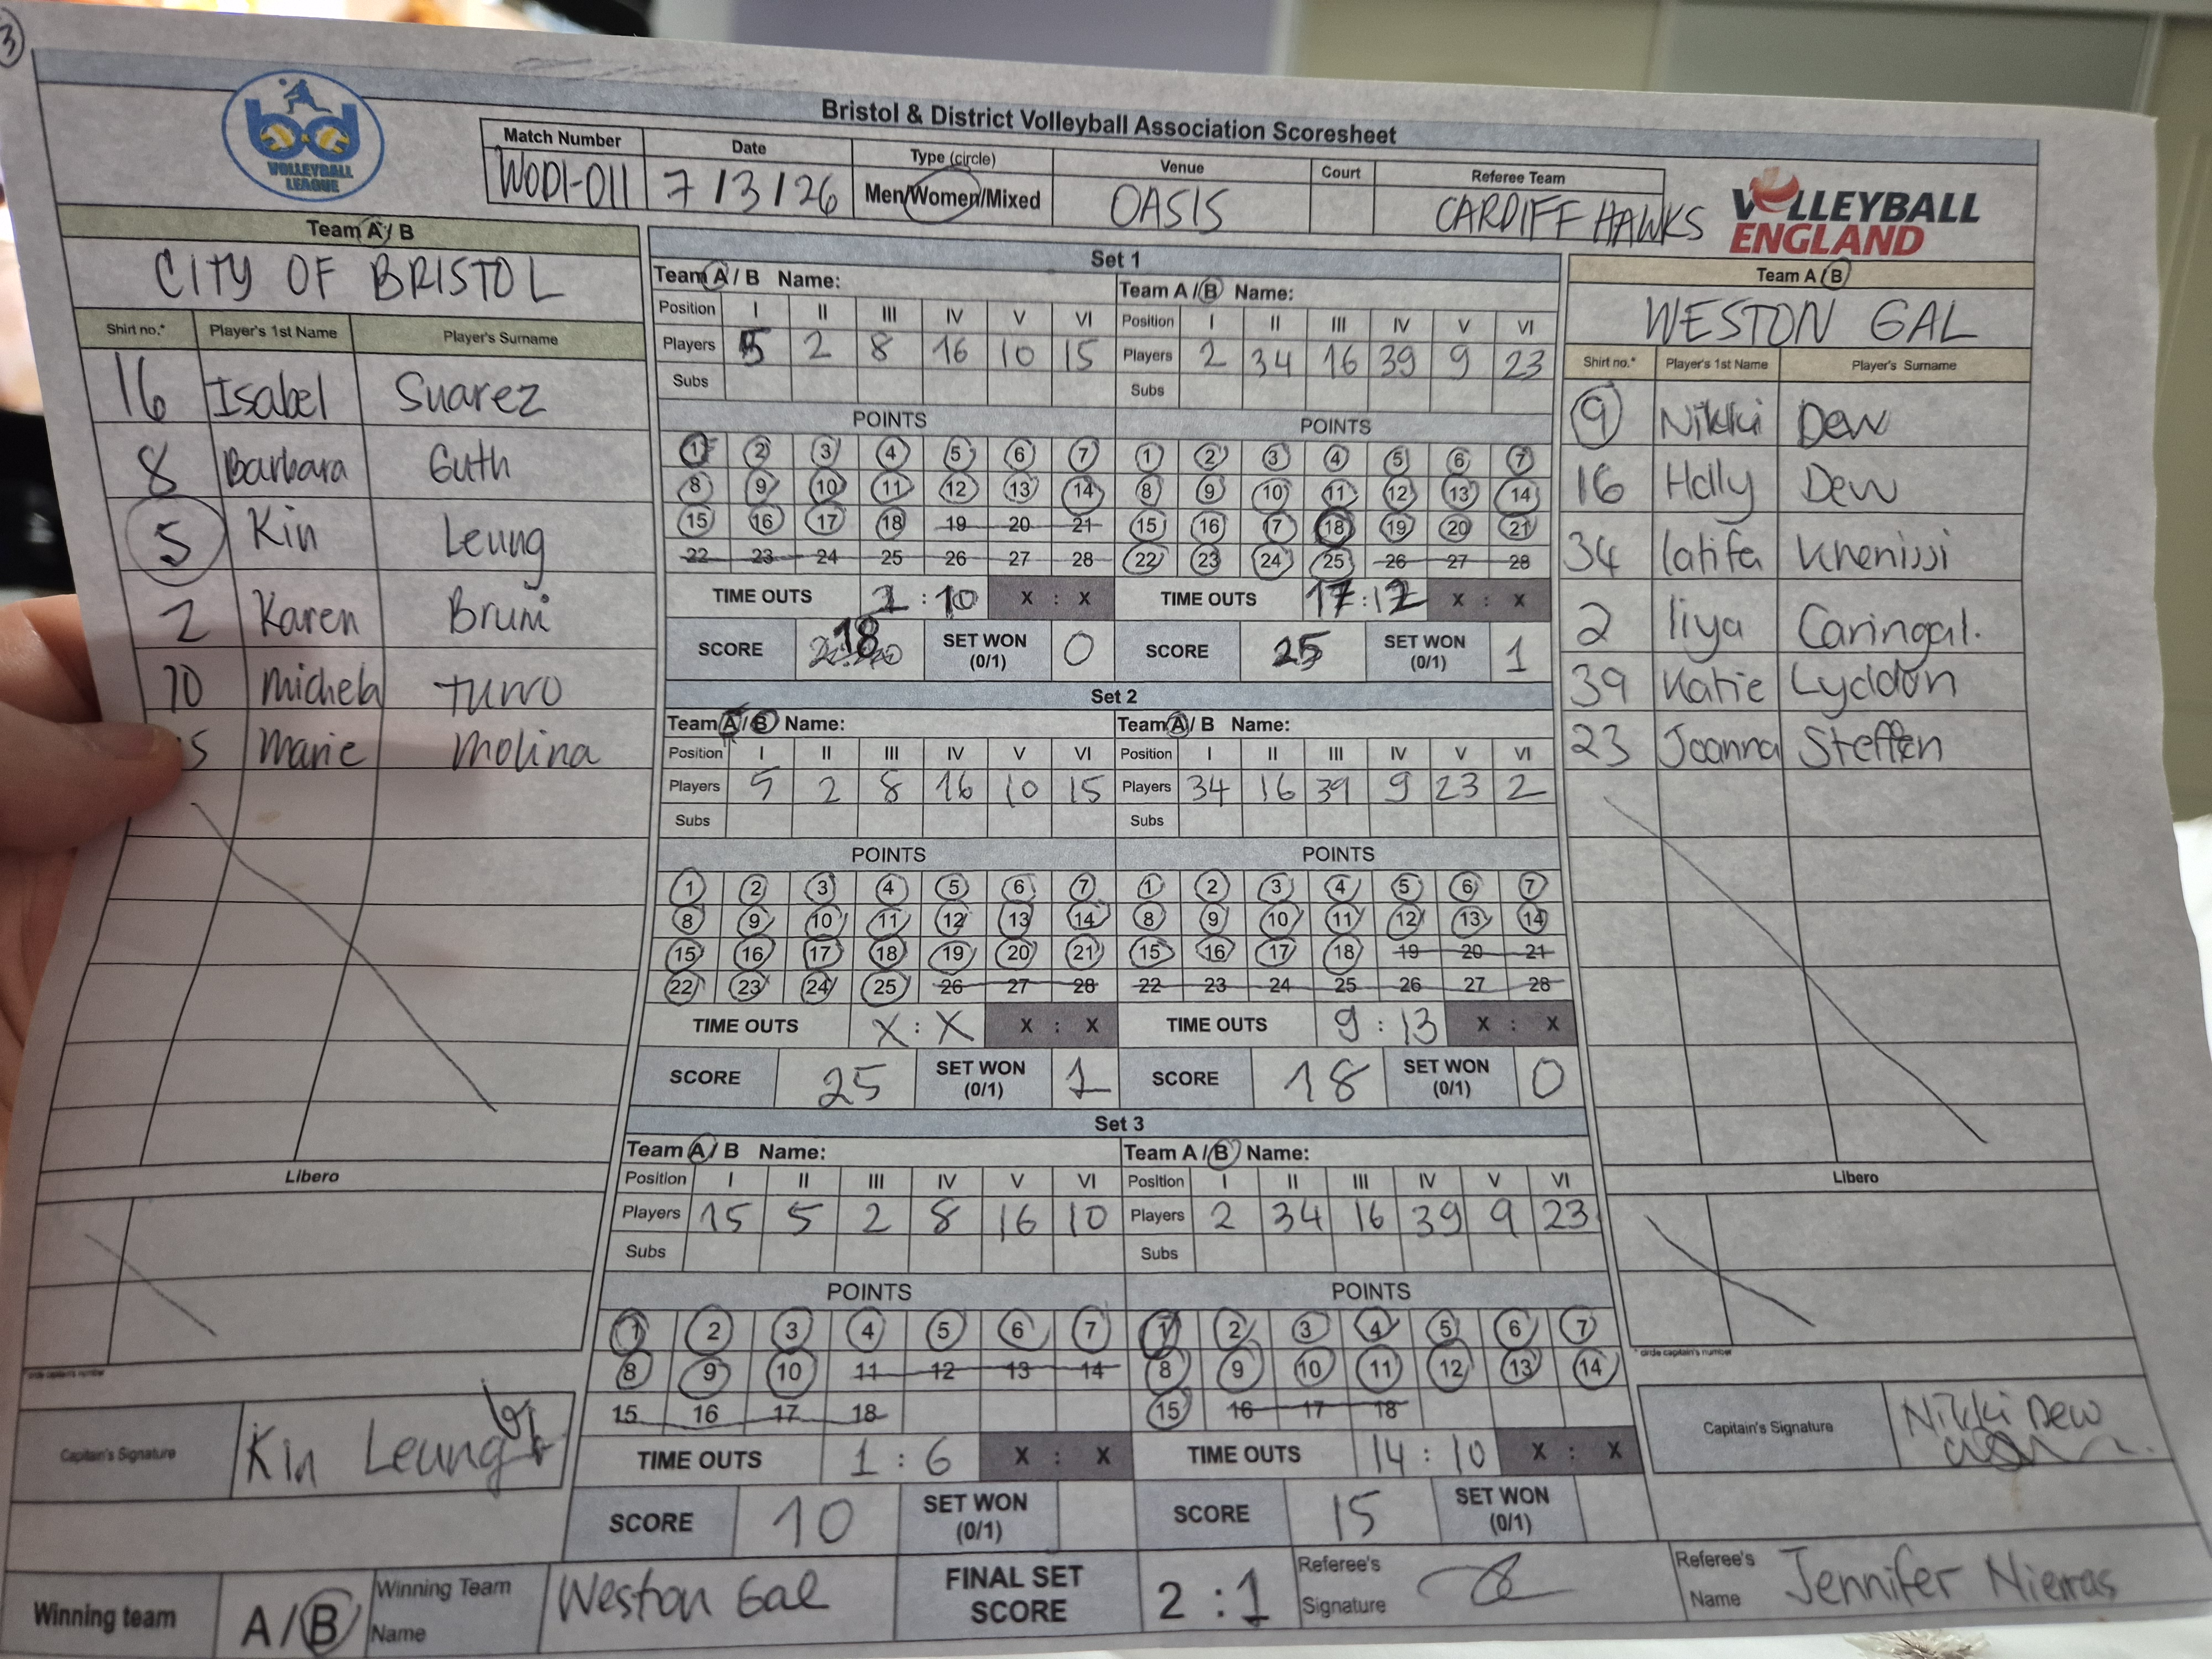 3
bd
VOLLEYBALL
LEAGUE
Bristol & District Volleyball Association Scoresheet
Match Number Date Type (circle) Venue Court Referee Team
WOD1-011 7/3/26 Men/Women/Mixed OASIS CARDIFF HAWKS
VOLLEYBALL
ENGLAND
Team A / B
CITY OF BRISTOL
Shirt no.* Player's 1st Name Player's Surname
16 Isabel Suarez
8 Barbara Guth
5 Kin Leung
2 Karen Bruni
10 Michela Turro
15 Marie Molina
Libero
* circle captain's number
Captain's Signature Kin Leung
Set 1
Team A / B Name: Team A / B Name:
Position I II III IV V VI Position I II III IV V VI
Players 5 2 8 16 10 15 Players 2 34 16 39 9 23
Subs Subs
POINTS POINTS
1 2 3 4 5 6 7 1 2 3 4 5 6 7
8 9 10 11 12 13 14 8 9 10 11 12 13 14
15 16 17 18 19 20 21 15 16 17 18 19 20 21
22 23 24 25 26 27 28 22 23 24 25 26 27 28
TIME OUTS : 10 X : X TIME OUTS 17:12 X : X
SCORE 18 SET WON (0/1) 0 SCORE 25 SET WON (0/1) 1
Set 2
Team A / B Name: Team A / B Name:
Position I II III IV V VI Position I II III IV V VI
Players 5 2 8 16 10 15 Players 34 16 39 9 23 2
Subs Subs
POINTS POINTS
1 2 3 4 5 6 7 1 2 3 4 5 6 7
8 9 10 11 12 13 14 8 9 10 11 12 13 14
15 16 17 18 19 20 21 15 16 17 18 19 20 21
22 23 24 25 26 27 28 22 23 24 25 26 27 28
TIME OUTS X : X X : X TIME OUTS 9 : 13 X : X
SCORE 25 SET WON (0/1) 1 SCORE 18 SET WON (0/1) 0
Set 3
Team A / B Name: Team A / B Name:
Position I II III IV V VI Position I II III IV V VI
Players 15 5 2 8 16 10 Players 2 34 16 39 9 23
Subs Subs
POINTS POINTS
1 2 3 4 5 6 7 1 2 3 4 5 6 7
8 9 10 11 12 13 14 8 9 10 11 12 13 14
15 16 17 18 15 16 17 18
TIME OUTS 1 : 6 X : X TIME OUTS 14 : 10 X : X
SCORE 10 SET WON (0/1) SCORE 15 SET WON (0/1)
Team A / B
WESTON GAL
Shirt no.* Player's 1st Name Player's Surname
9 Nikki Dew
16 Holly Dew
34 latifa Khenissi
2 liya Caringal.
39 Katie Lyddon
23 Joanna Steffen
Libero
* circle captain's number
Captain's Signature Nikki Dew
Winning team A/B Winning Team Name Weston Gal FINAL SET SCORE 2 : 1 Referee's Signature Referee's Name Jennifer Nierras